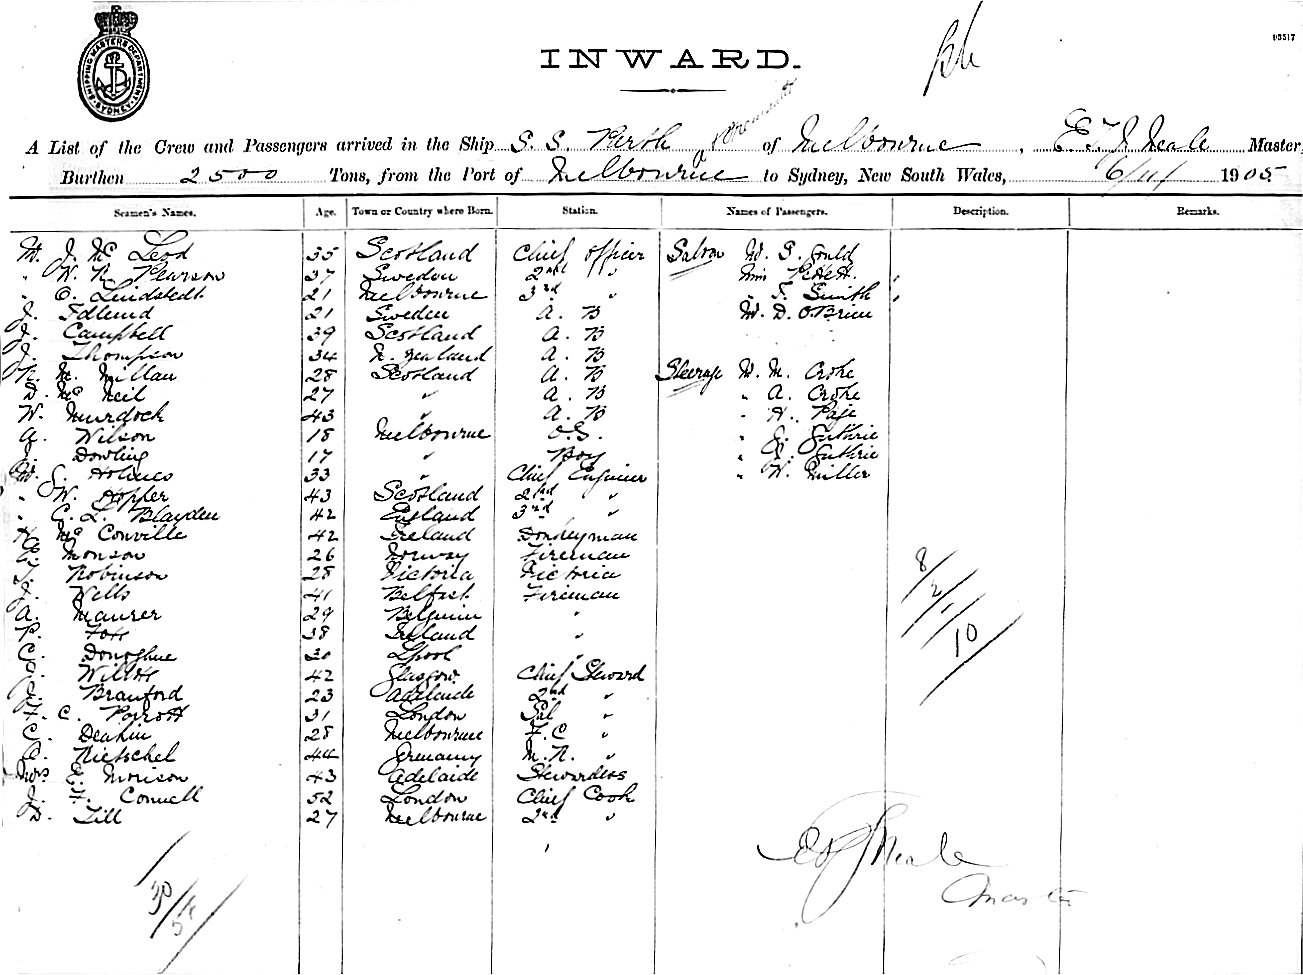 03517
INWARD.
SHIPPING MASTERS DEPARTMENT SYDNEY
A List of the Crew and Passengers arrived in the Ship S. S. Perth of Melbourne, E. T. J. Neale Master,
Burthen 2500 Tons, from the Port of Melbourne to Sydney, New South Wales, 6/11/1905
Seamen's Names. Age. Town or Country where Born. Station. Names of Passengers. Description. Remarks.
M. J. Mc Leod 35 Scotland Chief Officer Saloon M. S. Gould
" W. R. Pearson 37 Sweden 2nd " Miss
" O. Lindstedt 21 Melbourne 3rd " " F. Smith
J. Edlund 21 Sweden A. B M. D. O'Brien
J. Campbell 39 Scotland A. B
J. Thompson 34 N. Zealand A. B
R. M. Millan 28 Scotland A. B Steerage M. M. Croke
D. Mc Neil 27 " A. B " A. Croke
W. Murdoch 43 " A. B " H. Page
A. Wilson 18 Melbourne O.S. " J. Guthrie
J. Dowling 17 " Boy " Guthrie
M. S. Holmes 33 " Chief Engineer " W. Miller
" W. Hopper 43 Scotland 2nd "
" C. L. Blayden 42 England 3rd "
H. Mc Conville 42 Ireland Donkeyman
E. Monson 26 Norway Fireman
T. Robinson 28 Victoria Victoria
J. Wells 41 Belfast Fireman
A. Maurer 29 Belgium "
P. Fox 38 Ireland "
C. Donoghue 30 Lpool "
Willis 42 Glasgow Chief Steward
J. Branford 23 Adelaide 2nd "
F. C. Parrott 31 London Sal "
C. Deakin 28 Melbourne F. C "
O. Nietschel 44 Germany M. R. "
Mrs E. Morison 43 Adelaide Stewardess
J. F. Connell 52 London Chief Cook
D. Till 27 Melbourne 2nd "
8/2/
10
30/
E T J Neale
Master